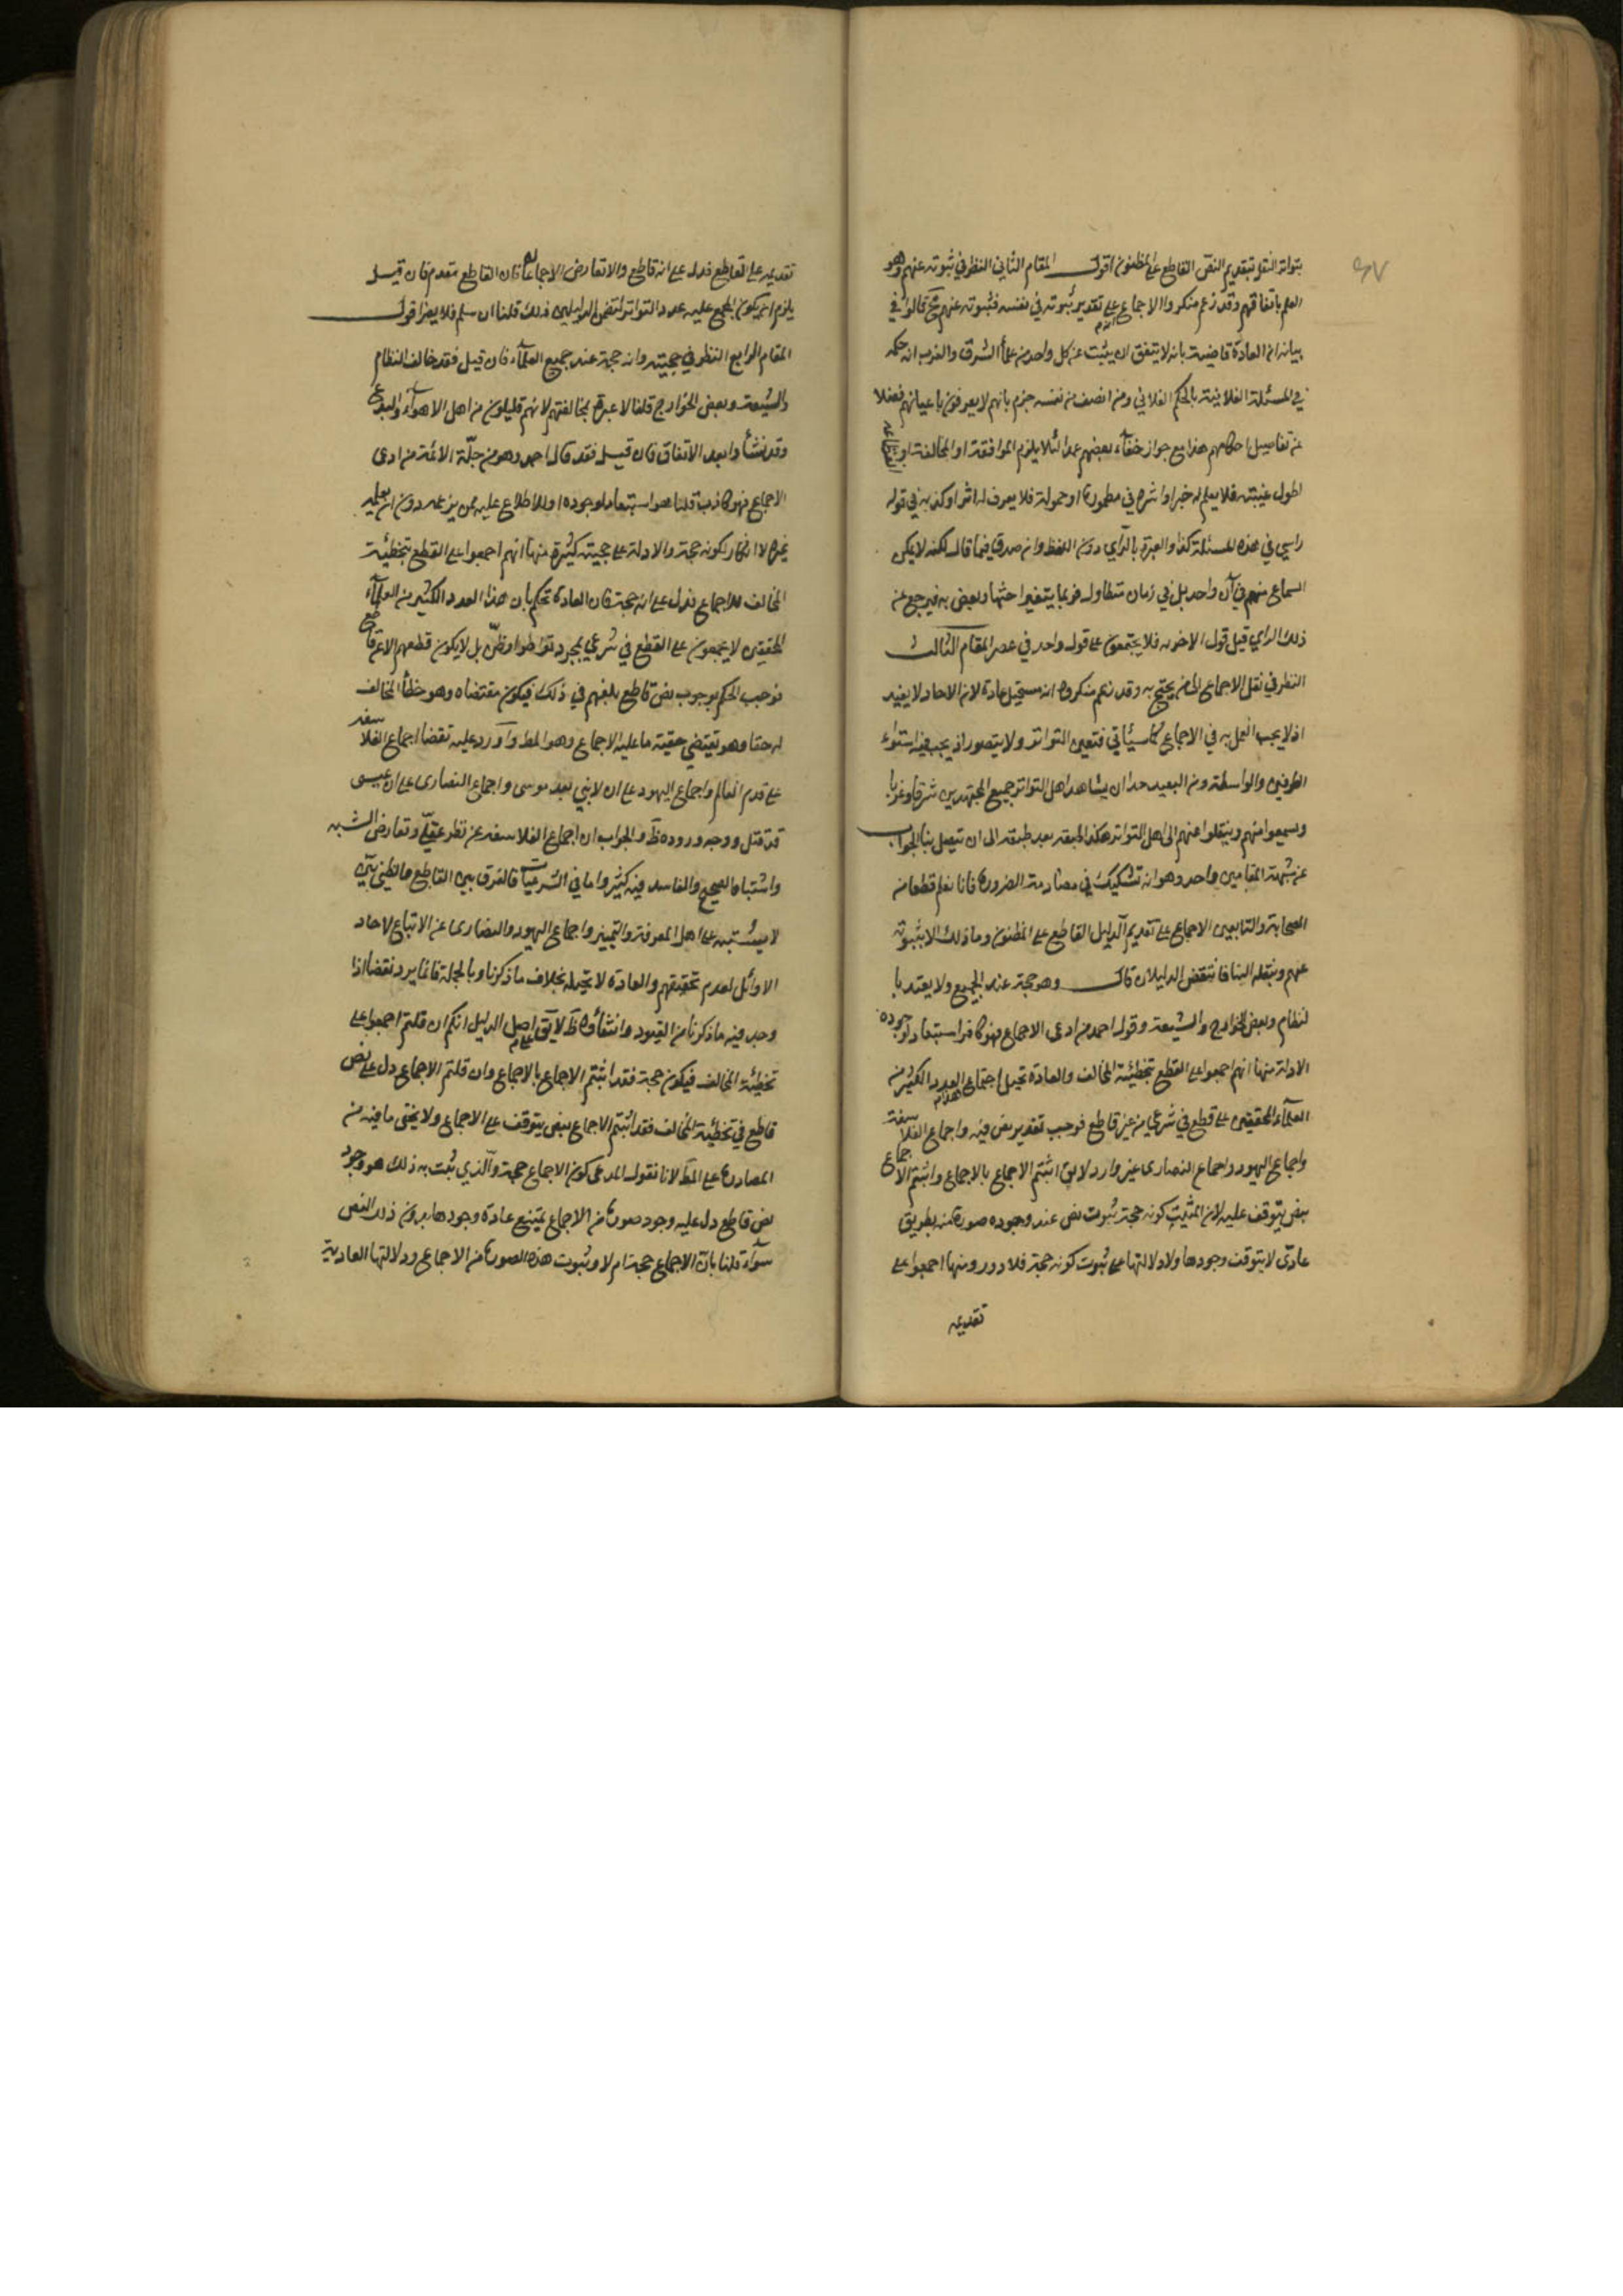 ٤٧
بتواتر النقل بتقديم النص القاطع على المظنون اقول المقام الثاني النظر في ثبوته عنهم وهو
العلم باتفاقهم وقد زعم منكروا الاجماع على تقدير ثبوته في نفسه فثبوته عنهم مح قالوا في
بيانه ان العادة قاضية بانه لا يتفق ان يثبت عن كل واحد من علماء الشرق والغرب انه حكم
في المسئلة الفلانية بالحكم الفلاني ومن انصف من نفسه جزم بانهم لا يعرفون باعيانهم فضلا
عن تفاصيل احكامهم هذا مع جواز خفاء بعضهم عمدا لئلا يلزم الموافقة او المخالفة او
لطول غيبته فلا يعلم له خبر او اسره في مطمورة او خموله فلا يعرف له اثر او كذبه في قوله
رايي في هذه المسئلة كذا والعبرة بالرأي دون اللفظ وان صدق فيما قال لكنه لا يمكن
السماع منهم في آن واحد بل في زمان متطاول فربما يتغير اجتهاد بعض به فيرجع عن
ذلك الراي قبل قول الاخر به فلا يجتمعون على قول واحد في عصر المقام الثالث
النظر في نقل الاجماع الى من يحتج به وقد زعم منكروه انه مستحيل عادة لان الاحاد لا يفيد
اذ لا يجب العمل به في الاجماع كما سيأتي فتعين التواتر ولا يتصور اذ يجب فيه استواء
الطرفين والواسطة ومن البعيد جدا ان يشاهد اهل التواتر جميع المجتهدين شرقا وغربا
ويسمعوا منهم وينقلوا عنهم الى اهل التواتر هكذا طبقه بعد طبقه الى ان تتصل بنا الجواب
عن شبهة المقامين واحد وهو انه تشكيك في مصادمة الضرورة فانا نعلم قطعا من
الصحابة والتابعين الاجماع على تقديم الدليل القاطع على المظنون وما ذلك الا بثبوته
عنهم وبنقله الينا فانتقض الدليلان قال وهو حجة عند الجميع ولا يعتد با
لنظام وبعض الخوارج والشيعة وقول احمد من ادعى الاجماع فهو كاذب استبعاد لوجوده
الادلة منها انهم اجمعوا على القطع بتخطئة المخالف والعادة تحيل اجتماع العدد الكثير من
العلماء المحققين على قطع في شرعي من غير قاطع فوجب تقدير نص فيه واجماع الفلاسفة
واجماع اليهود واجماع النصارى غير وارد لا يق اثبتم الاجماع بالاجماع واثبتم الاجماع
بنص يتوقف عليه لان المثبت كونه حجة ثبوت نص عند وجوده صورة منه بطريق
عادّى لا يتوقف وجودها ولا دلالتها على ثبوت كونه حجة فلا دور ومنها اجمعوا على
تقديمه
تقديمه على القاطع فدل على انه قاطع والا تعارض الاجماعان فان القاطع مقدم فان قيل
يلزم ان يكون المجمع عليه عدد التواتر لتضمن الدليلين ذلك قلنا ان سلم فلا يضر اقول
المقام الرابع النظر في حجيته وانه حجة عند جميع العلماء فان قيل فقد خالف النظام
والشيعة وبعض الخوارج قلنا لا عبرة بمخالفتهم لانهم قليلون من اهل الاهواء والبدع
وقد نشأوا بعد الاتفاق فان قيل فقد قال احمد وهو من جلّة الائمة من ادعى
الاجماع فهو كاذب قلنا هو استبعاد لوجوده او للاطلاع عليه ممن يزعمه دون ان يعلمه
غيره لا انكار لكونه حجة والادلة على حجيته كثيرة منها انهم اجمعوا على القطع بتخطئة
المخالف للاجماع فدل على انه حجة فان العادة تحكم بان هذا العدد الكثير من العلماء
المحققين لا يجمعون على القطع في شرعي بمجرد تواطؤا وظنّ بل لا يكون قطعهم الا عن قاطع
فوجب الحكم بوجوب نص قاطع بلغهم في ذلك فيكون مقتضاه وهو خطأ المخالف
له حقا وهو يقتضي حقيقة ما عليه الاجماع وهو المط واورد عليه نقضا اجماع الفلاسفه
على قدم العالم واجماع اليهود على ان لا نبي بعد موسى واجماع النصارى على ان عيسى
قد قتل ووجه وروده ظ والجواب ان اجماع الفلاسفه عن نظر عقلّي وتعارض الشبه
واشتباه الصحيح والفاسد فيه كثير واما في الشرعيات فالفرق بين القاطع والظني بيّن
لا يشتبه على اهل المعرفة والتمييز واجماع اليهود والنصارى عن الاتباع لآحاد
الاوائل لعدم تحقيقهم والعادة لا تحيله بخلاف ما ذكرنا وبالجملة فانما يرد نقضا اذا
وجد فيه ما ذكرنا من القيود وانتفاؤه ظ لا يق على اصل الدليل انكم ان قلتم اجمعوا على
تخطئة المخالف فيكون حجة فقد اثبتم الاجماع بالاجماع وان قلتم الاجماع دل على نص
قاطع في تخطئة المخالف فقد اثبتم الاجماع بنص يتوقف على الاجماع ولا يخفى ما فيه من
المصادرة على المط لانا نقول المدعى كون الاجماع حجة والذي ثبت به ذلك هو وجود
نص قاطع دل عليه وجود صورة من الاجماع يمتنع عادة وجودها بدون ذلك النص
سوآء قلنا بان الاجماع حجة ام لا وثبوت هذه الصورة من الاجماع ودلالتها العادية